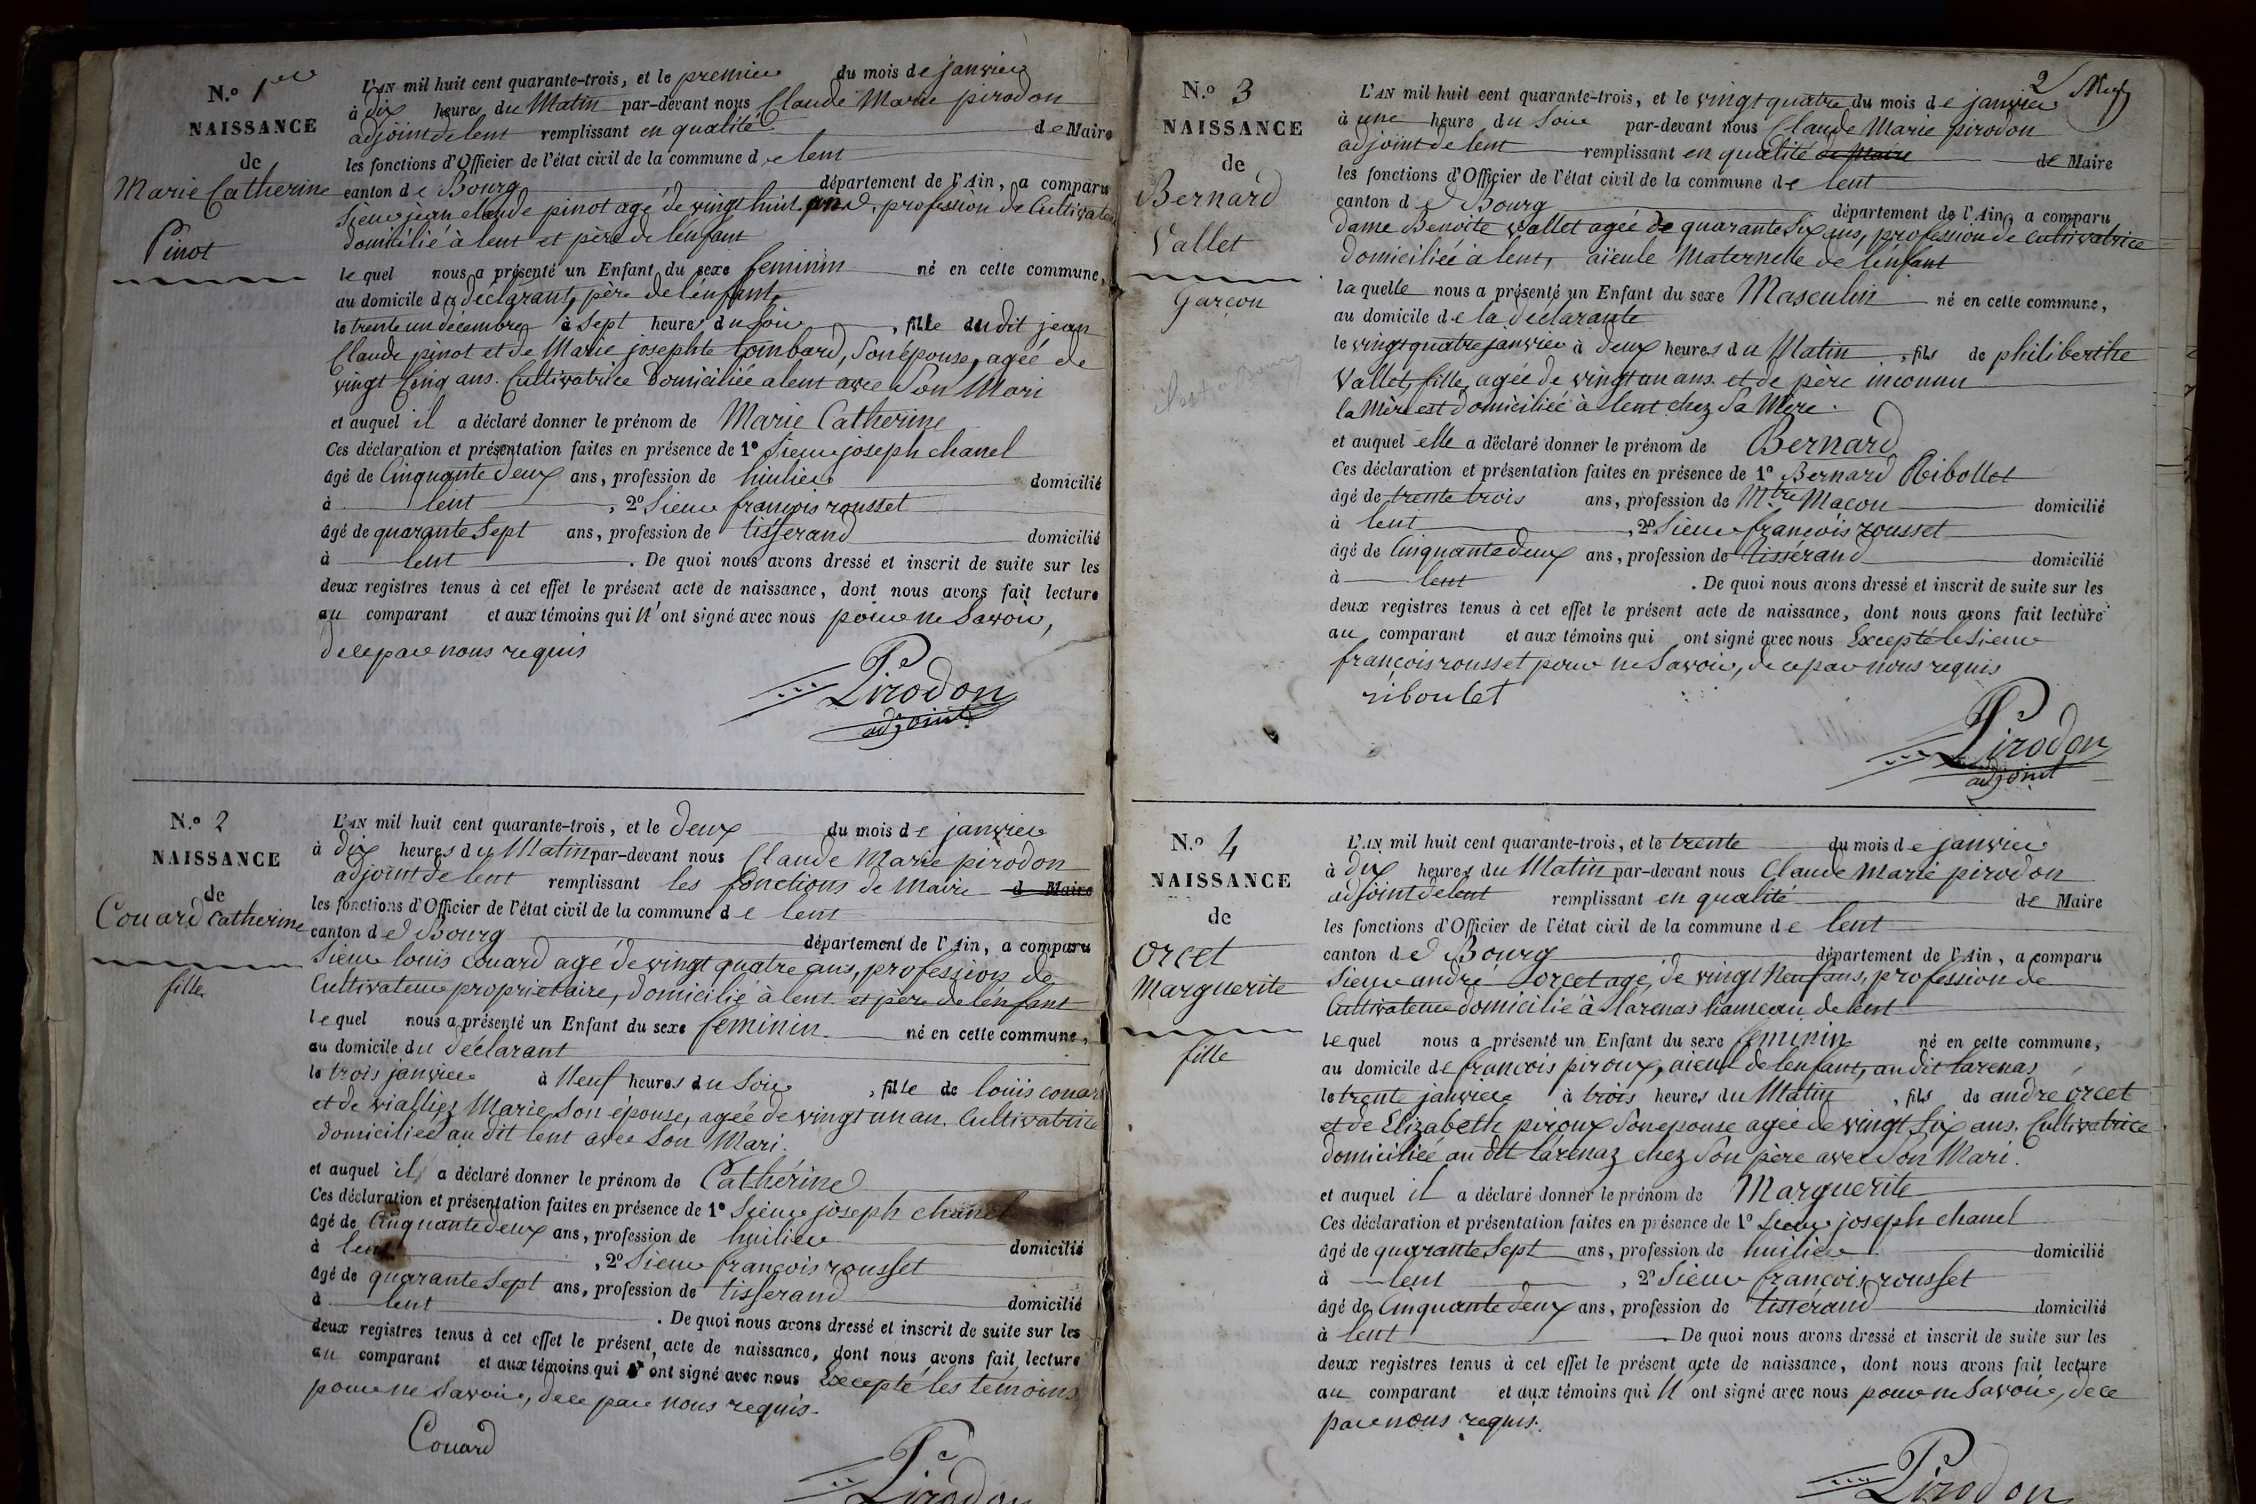 N.o 1er
NAISSANCE
de
Marie Catherine
Pinot
L'AN mil huit cent quarante-trois, et le premier du mois de janvier
à dix heures du Matin par-devant nous Claude Marie pirodon
adjoint de lent remplissant en qualité de Maire
les fonctions d'Officier de l'état civil de la commune de lent
canton de Bourg département de l'Ain, a comparu
Sieur jean claude pinot agé de vingt huit ans, profession de Cultivateur
domicilié à lent et père de l'enfant
lequel nous a présenté un Enfant du sexe feminin né en cette commune,
au domicile du déclarant, père de l'enfant,
le trente un décembre à Sept heures du Soir, fille du dit jean
Claude pinot et de Marie josephte lombard, Son épouse, agée de
vingt Cinq ans. Cultivatrice domiciliée a lent avec Son Mari
et auquel il a déclaré donner le prénom de Marie Catherine
Ces déclaration et présentation faites en présence de 1o Sieur joseph chanel
âgé de Cinquante deux ans, profession de huilier domicilié
à lent, 2o Sieur françois rousset
âgé de quarante Sept ans, profession de tisserand domicilié
à lent. De quoi nous avons dressé et inscrit de suite sur les
deux registres tenus à cet effet le présent acte de naissance, dont nous avons fait lecture
au comparant et aux témoins qui N'ont signé avec nous pour ne Savoir,
de ce par nous requis
Pirodon
adjoint
N.o 2
NAISSANCE
de
Couard Catherine
fille
L'AN mil huit cent quarante-trois, et le deux du mois de janvier
à dix heures du Matin par-devant nous Claude Marie pirodon
adjoint de lent remplissant les fonctions de Maire d Maire
les fonctions d'Officier de l'état civil de la commune de lent
canton de Bourg département de l'Ain, a comparu
Sieur louis couard agé de vingt quatre ans, profession de
Cultivateur propriétaire, domicilié à lent et père de l'enfant
lequel nous a présenté un Enfant du sexe feminin né en cette commune,
au domicile du déclarant
le trois janvier à Neuf heures du Soir, fille de louis couard
et de vialliez Marie Son épouse, agée de vingt un an. Cultivatrice
domiciliée au dit lent avec Son Mari.
et auquel il a déclaré donner le prénom de Cathérine
Ces déclaration et présentation faites en présence de 1o Sieur joseph chanel
âgé de Cinquante deux ans, profession de huilier domicilié
à lent, 2o Sieur françois rousset
âgé de quarante Sept ans, profession de tisserand domicilié
à lent. De quoi nous avons dressé et inscrit de suite sur les
deux registres tenus à cet effet le présent acte de naissance, dont nous avons fait lecture
au comparant et aux témoins qui ont signé avec nous Excepté les temoins
pour ne Savoir, de ce par nous requis.
Couard
Pirodon
2
N.o 3
NAISSANCE
de
Bernard
Vallet
Garçon
L'AN mil huit cent quarante-trois, et le vingt quatre du mois de janvier
à une heure du Soir par-devant nous Claude Marie pirodon
adjoint de lent remplissant en qualité de Maire de Maire
les fonctions d'Officier de l'état civil de la commune de lent
canton de Bourg département de l'Ain, a comparu
Dame Benoite vallet agée de quarante Six ans, profession de cultivatrice
domiciliée à lent, aïeule Maternelle de l'enfant
laquelle nous a présenté un Enfant du sexe Masculin né en cette commune,
au domicile de la déclarante
le vingt quatre janvier à deux heures du Matin, fils de philiberthe
Vallet, fille, agée de vingt un ans. et de père inconnu
la Mère est domiciliée à lent chez Sa Mère.
et auquel elle a déclaré donner le prénom de Bernard
Ces déclaration et présentation faites en présence de 1o Bernard Ribollet
âgé de trente trois ans, profession de Mtre Maçon domicilié
à lent, 2o Sieur françois rousset
âgé de Cinquante deux ans, profession de tissérand domicilié
à lent. De quoi nous avons dressé et inscrit de suite sur les
deux registres tenus à cet effet le présent acte de naissance, dont nous avons fait lecture
au comparant et aux témoins qui ont signé avec nous Excepté le Sieur
françois rousset pour ne Savoir, de ce par nous requis
riboulet
Pirodon
adjoint
N.o 4
NAISSANCE
de
orcet
Marguerite
fille
L'AN mil huit cent quarante-trois, et le trente du mois de janvier
à dix heures du Matin par-devant nous Claude Marie pirodon
adjoint de lent remplissant en qualité de Maire
les fonctions d'Officier de l'état civil de la commune de lent
canton de Bourg département de l'Ain, a comparu
Sieur andré orcet agé de vingt Neuf ans, profession de
Cultivateur domicilié à larenas hameau de lent
lequel nous a présenté un Enfant du sexe feminin né en cette commune,
au domicile de francois piroux, aieul de l'enfant, au dit larenas
le trente janvier à trois heures du Matin, fils de andré orcet
et de Elizabeth piroux Son epouse agée de vingt Six ans. Cultivatrice
domiciliée au dit larenaz chez Son père avec Son Mari.
et auquel il a déclaré donner le prénom de Marguerite
Ces déclaration et présentation faites en présence de 1o Sieur joseph chanel
âgé de quarante Sept ans, profession de huilier domicilié
à lent, 2o Sieur françois rousset
âgé de Cinquante deux ans, profession de tissérand domicilié
à lent. De quoi nous avons dressé et inscrit de suite sur les
deux registres tenus à cet effet le présent acte de naissance, dont nous avons fait lecture
au comparant et aux témoins qui N'ont signé avec nous pour ne Savoir, de ce
par nous requis.
Pirodon